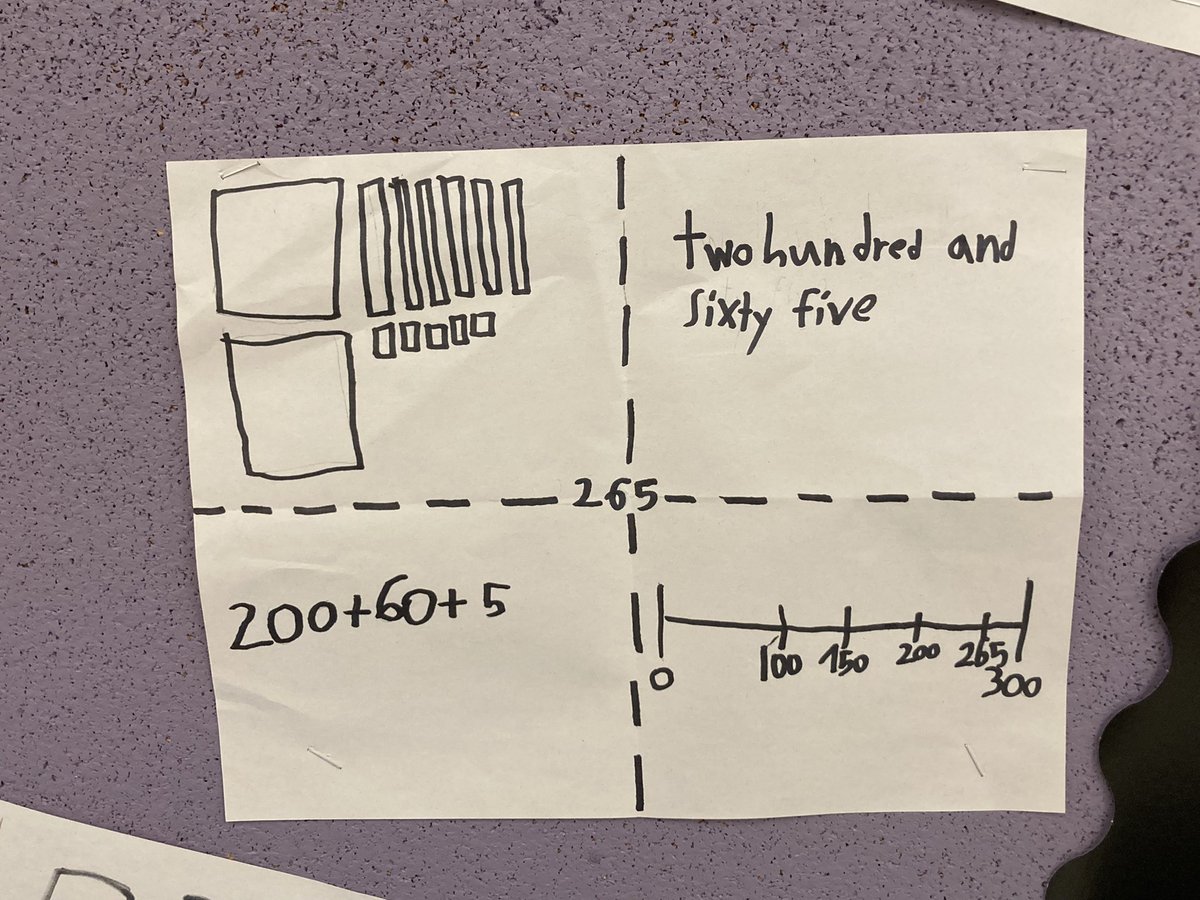 two hundred and
sixty five
265
200+60+5
0 100 150 200 265 300